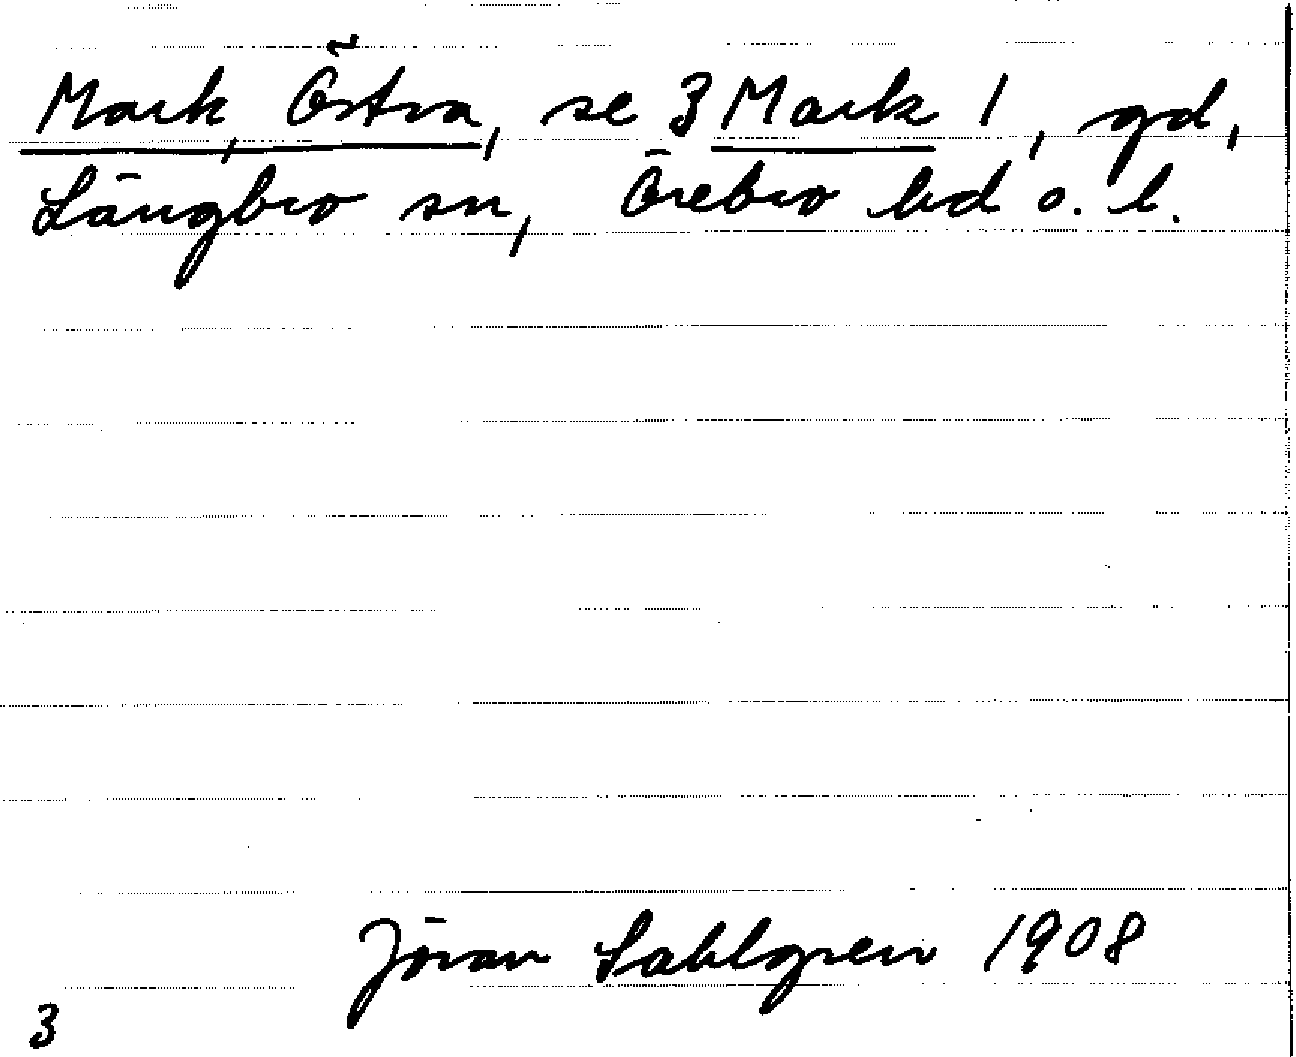 Mark, Östra, se 3 Mark 1, gd,
Längbro sn, Örebro hd o. l.
Jöran Sahlgren 1908
3